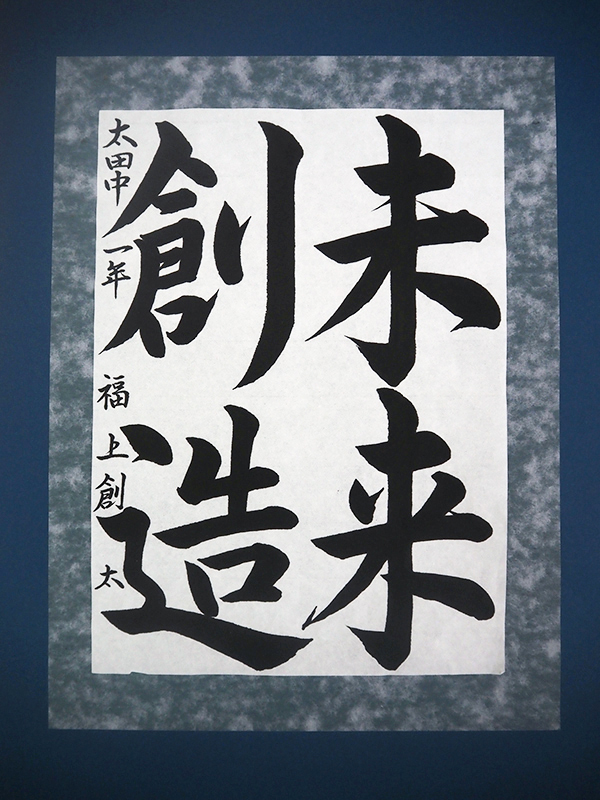 未来
創造
太田中 一年 福上創太